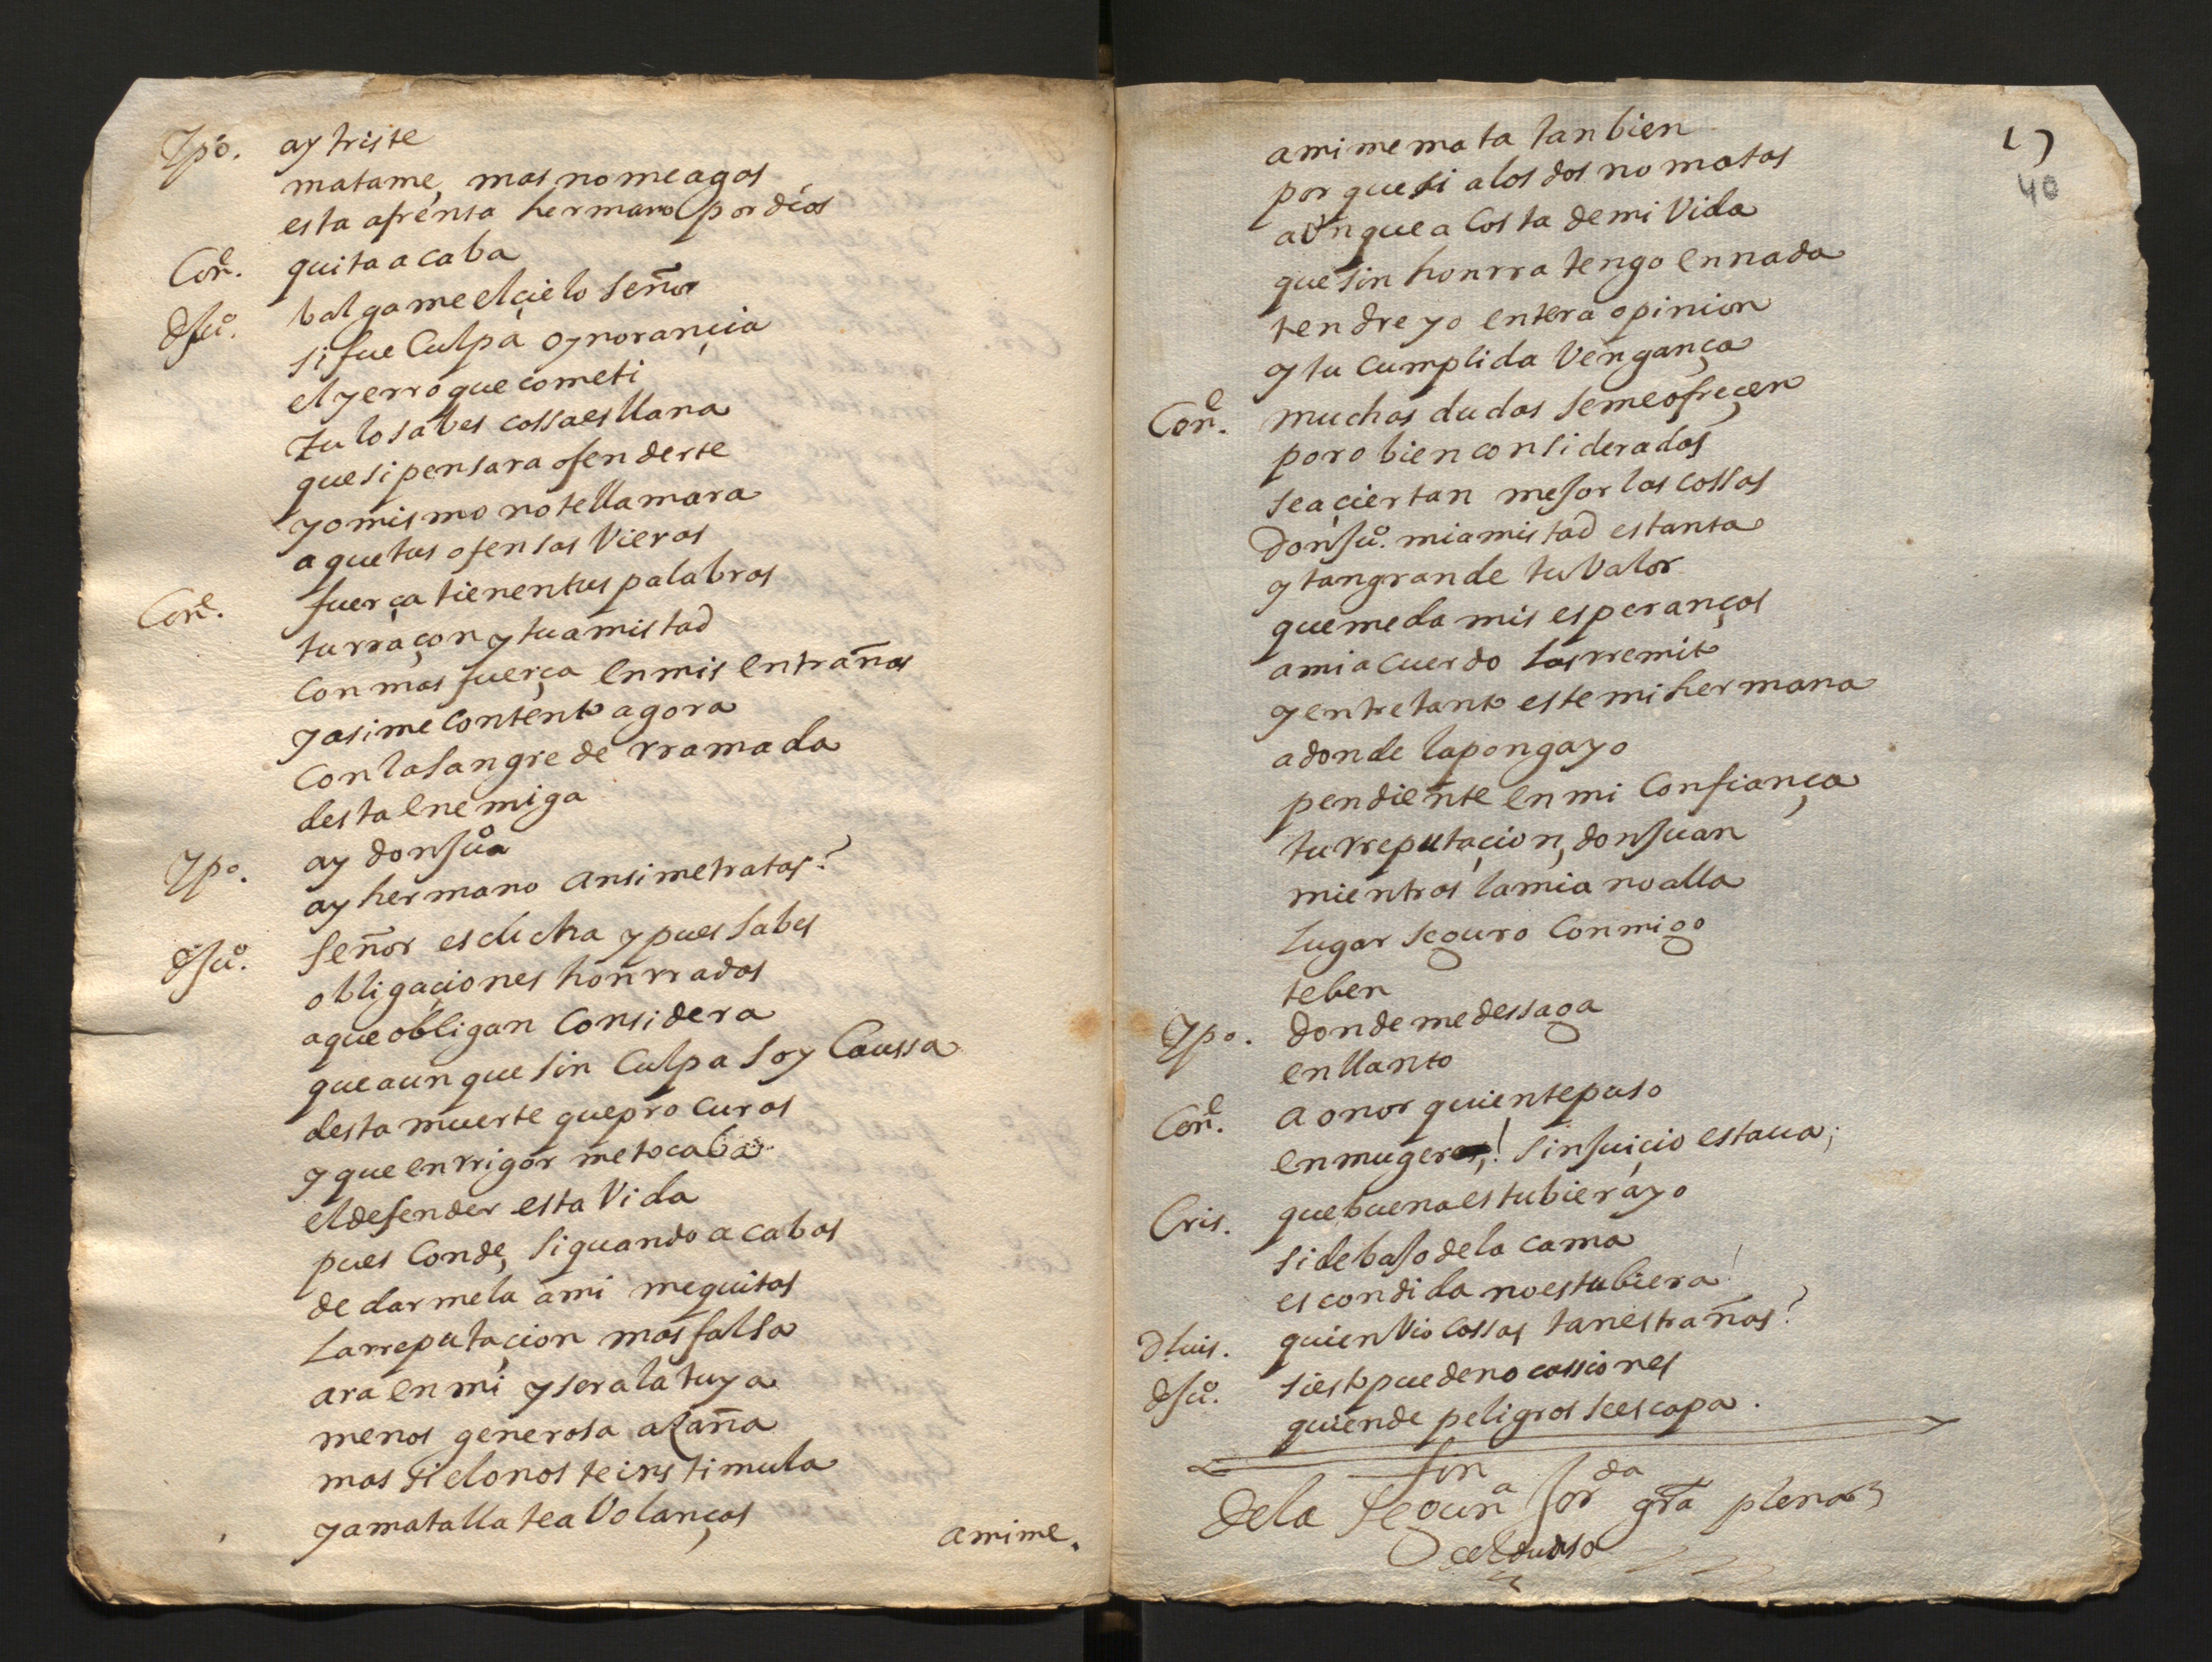 Ypo. ay triste
matame, mas no me agas
esta afrenta hermano por dios
Cone. quita acaba
D Juº. balgame el çielo Señor
si fue Culpa o ynorançia
el yerro que cometi
tu lo sabes cossa es llana
que si pensara ofenderte
yo mismo no te llamara
a que tus ofensas Vieras
Cone. fuerça tienen tus palabras
tu rraçon y tu amistad
Con mas fuerça en mis entrañas
y asi me contento agora
Con la sangre derramada
desta enemiga
Ypo. ay don Juº
ay hermano ansi me tratas?
D Juº. Señor es dicha y pues sabes
obligaçiones honrradas
a que obligan Considera
que aunque sin Culpa soy Caussa
desta muerte que procuras
y que en rrigor me tocaba
el defender esta Vida
pues Conde, si quando acabas
de darmela a mi me quitas
La rreputaçion mas falsa
ara en mi y sera la tuya
menos generosa azaña
mas si el onos te instimula
y a matalla te aVolanças
a mi me.
17
40
a mi me mata tanbien
porque si a los dos no matas
aunque a Costa de mi Vida
que sin honrra tengo en nada
tendre yo entera opinion
y tu cumplida Vengança
Cone. muchas dudas se me ofreçen
poro bien considerados
se açiertan mejor las cossas
don Juº. mi amistad es tanta
y tan grande tu Valor
que me da mis esperanças
a mi acuerdo las rremito
y entre tanto este mi hermana
adonde la ponga yo
pendiente en mi Confiança
tu rreputaçion, don Juan
mientras la mia no alla
Lugar seguro Conmigo
te ben
Ypo. donde me dessaga
en llanto
Cone. a onor quien te puso
en muger! sin Juicio estaua;
Cris. que buena estubiera yo
si debajo de la cama
escondida no estubiera!
D Luis. quien Vio cossas tan estrañas?
D Juº. si esto pueden ocassiones
quien de peligros se escapa.
fin
de la Segunª Jorda grã plena